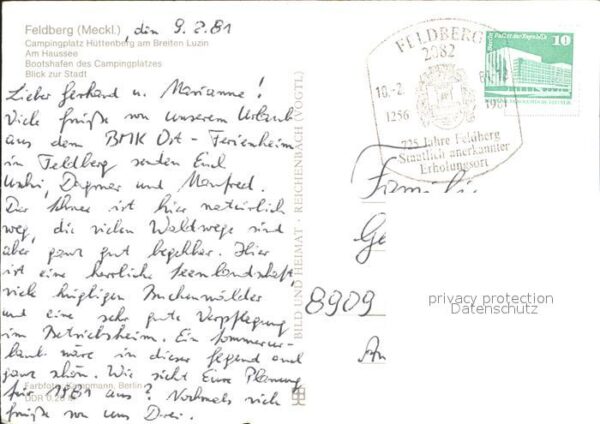 Feldberg (Meckl.), den 9.2.81
Campingplatz Hüttenberg am Breiten Luzin
Am Haussee
Bootshafen des Campingplatzes
Blick zur Stadt
Lieber Gerhard u. Marianne!
Viele Grüße von unserem Urlaub
aus dem BMK Ost-Ferienheim
in Feldberg senden Euch
Dagmar und Manfred.
Der Schnee ist hier natürlich
weg, die vielen Waldwege sind
aber ganz gut begehbar. Hier
ist eine herrliche Seenlandschaft,
viele hügligen Buchenwälder
und eine sehr gute Verpflegung
im Betriebsheim. Ein Sommerur-
laub wäre in dieser Gegend auch
ganz schön. Wie sieht Eure Planung
für 1981 aus? Nochmals viele
Grüße von uns Drei.
Farbfoto: Kampmann, Berlin
DDR 0,20 M
BILD UND HEIMAT · REICHENBACH (VOGTL)
FELDBERG
2082
10.-2.
1256
1981
725 Jahre Feldberg
Staatlich anerkannter
Erholungsort
Berlin Palast der Republik 10
Famili
Ge
8909
An
privacy protection
Datenschutz